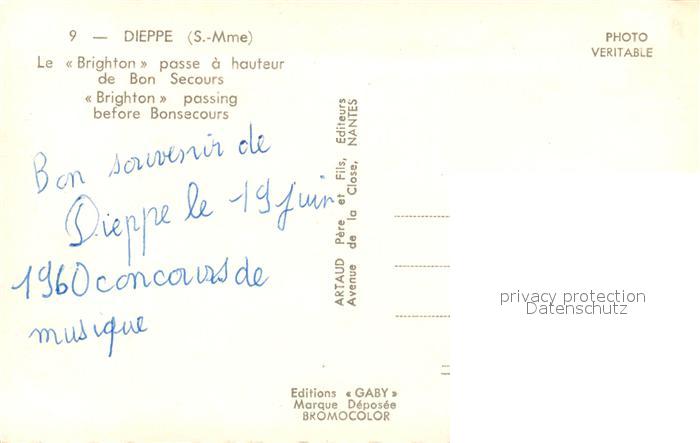 9 — DIEPPE (S.-Mme)
Le « Brighton » passe à hauteur
de Bon Secours
« Brighton » passing
before Bonsecours
PHOTO
VERITABLE
Bon souvenir de
Dieppe le 19 juin
1960 concours de
musique
ARTAUD Père et Fils, Editeurs
Avenue de la Close, NANTES
privacy protection
Datenschutz
Editions « GABY »
Marque Déposée
BROMOCOLOR